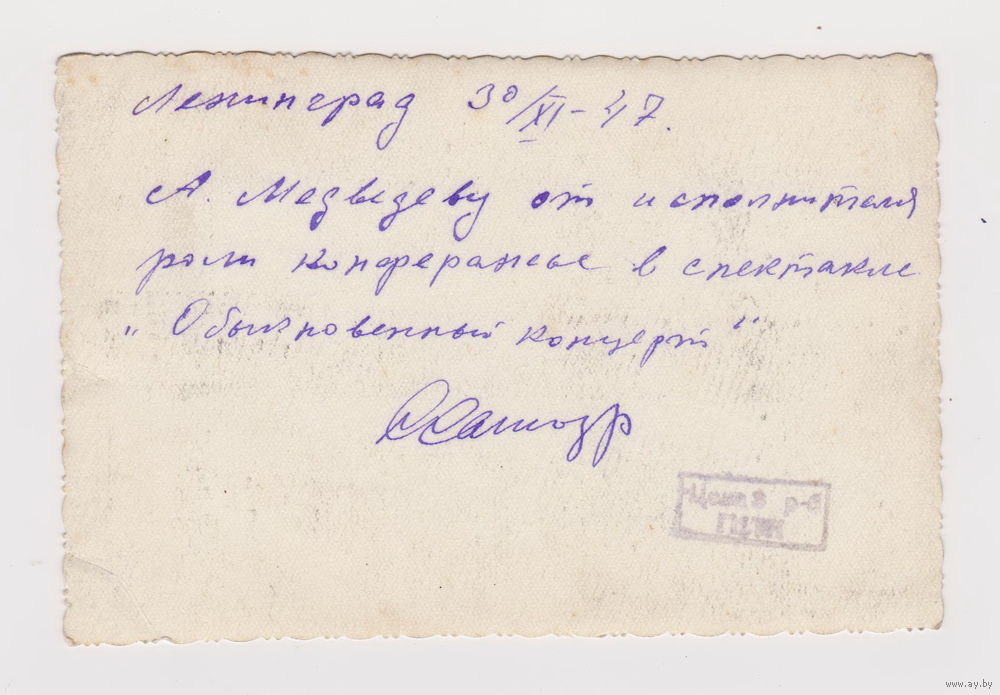 Ленинград 30/XI-47.
А. Медведеву от исполнителя
роли конферансье в спектакле
"Обыкновенный концерт"
Цена 3 р-б
www.ay.by